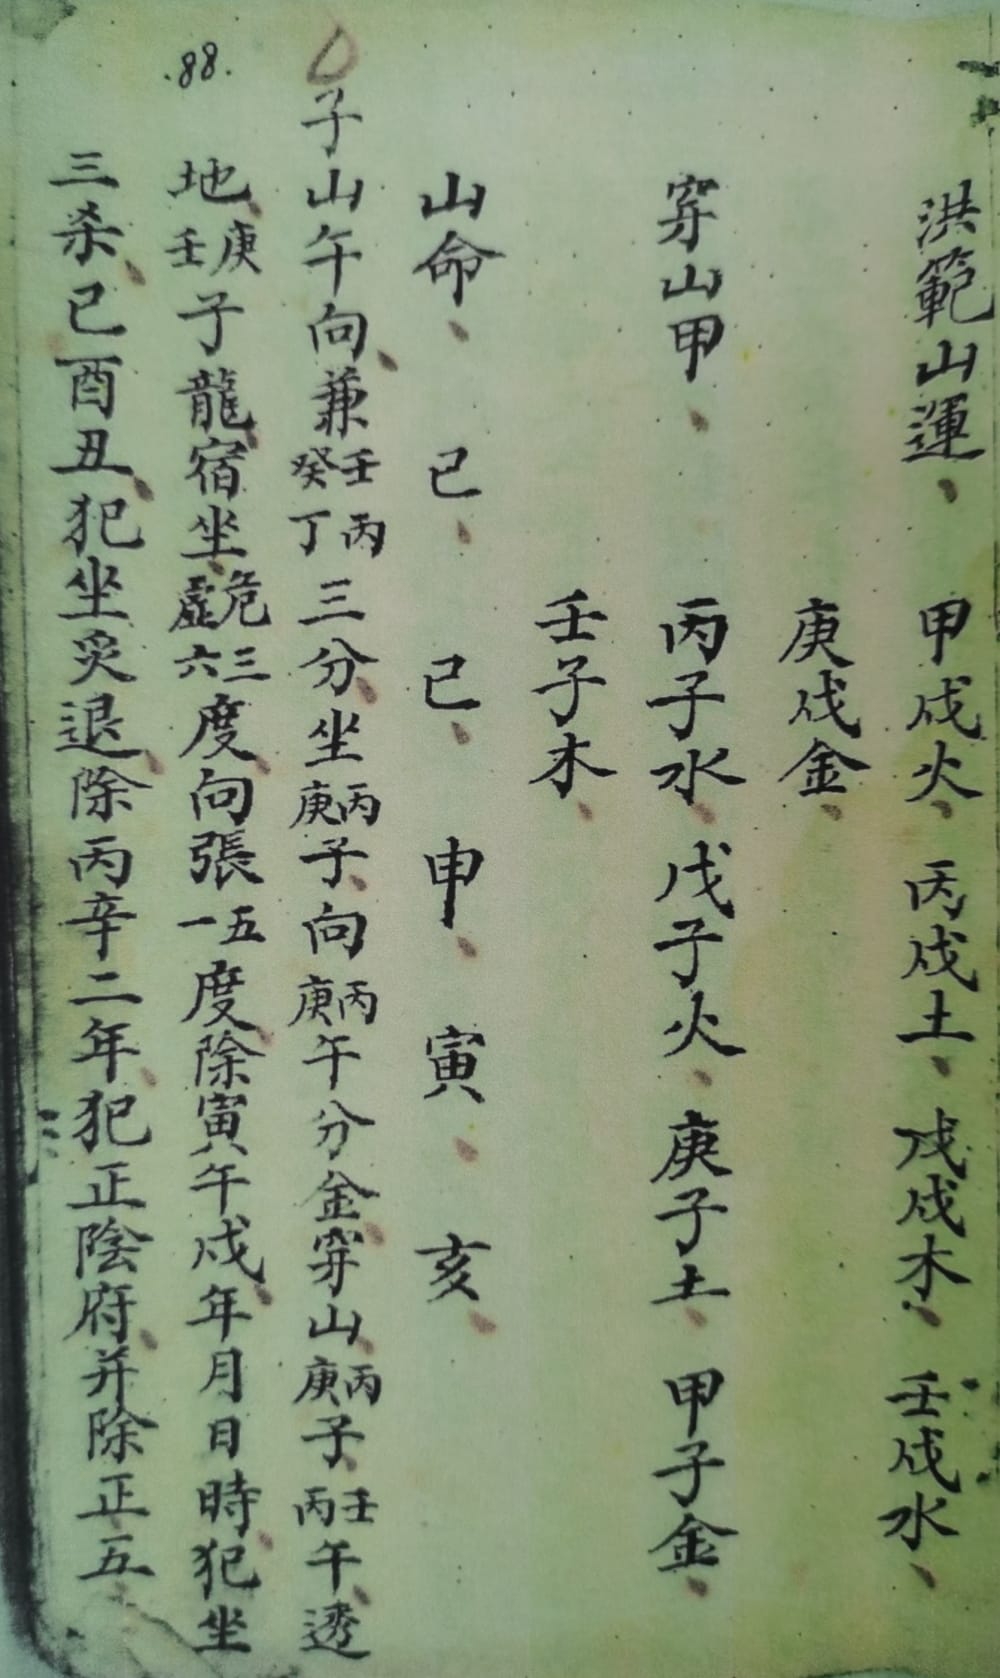 洪範山運、甲戌火、丙戌土、戊戌木、壬戌水、
庚戌金、
穿山甲、丙子水、戊子火、庚子土、甲子金、
壬子木、
山命、己、己、申、寅、亥、
子山午向、兼壬丙癸丁三分、坐丙庚子、向丙庚午分金、穿山、丙庚子、壬丙午、透
.88.
地、庚壬子龍、宿坐、危三虛六度、向張五一度、除寅午戌、年月日時、犯坐
三杀、巳酉丑、犯坐灾退、除丙辛二年、犯正陰府、并除正五、